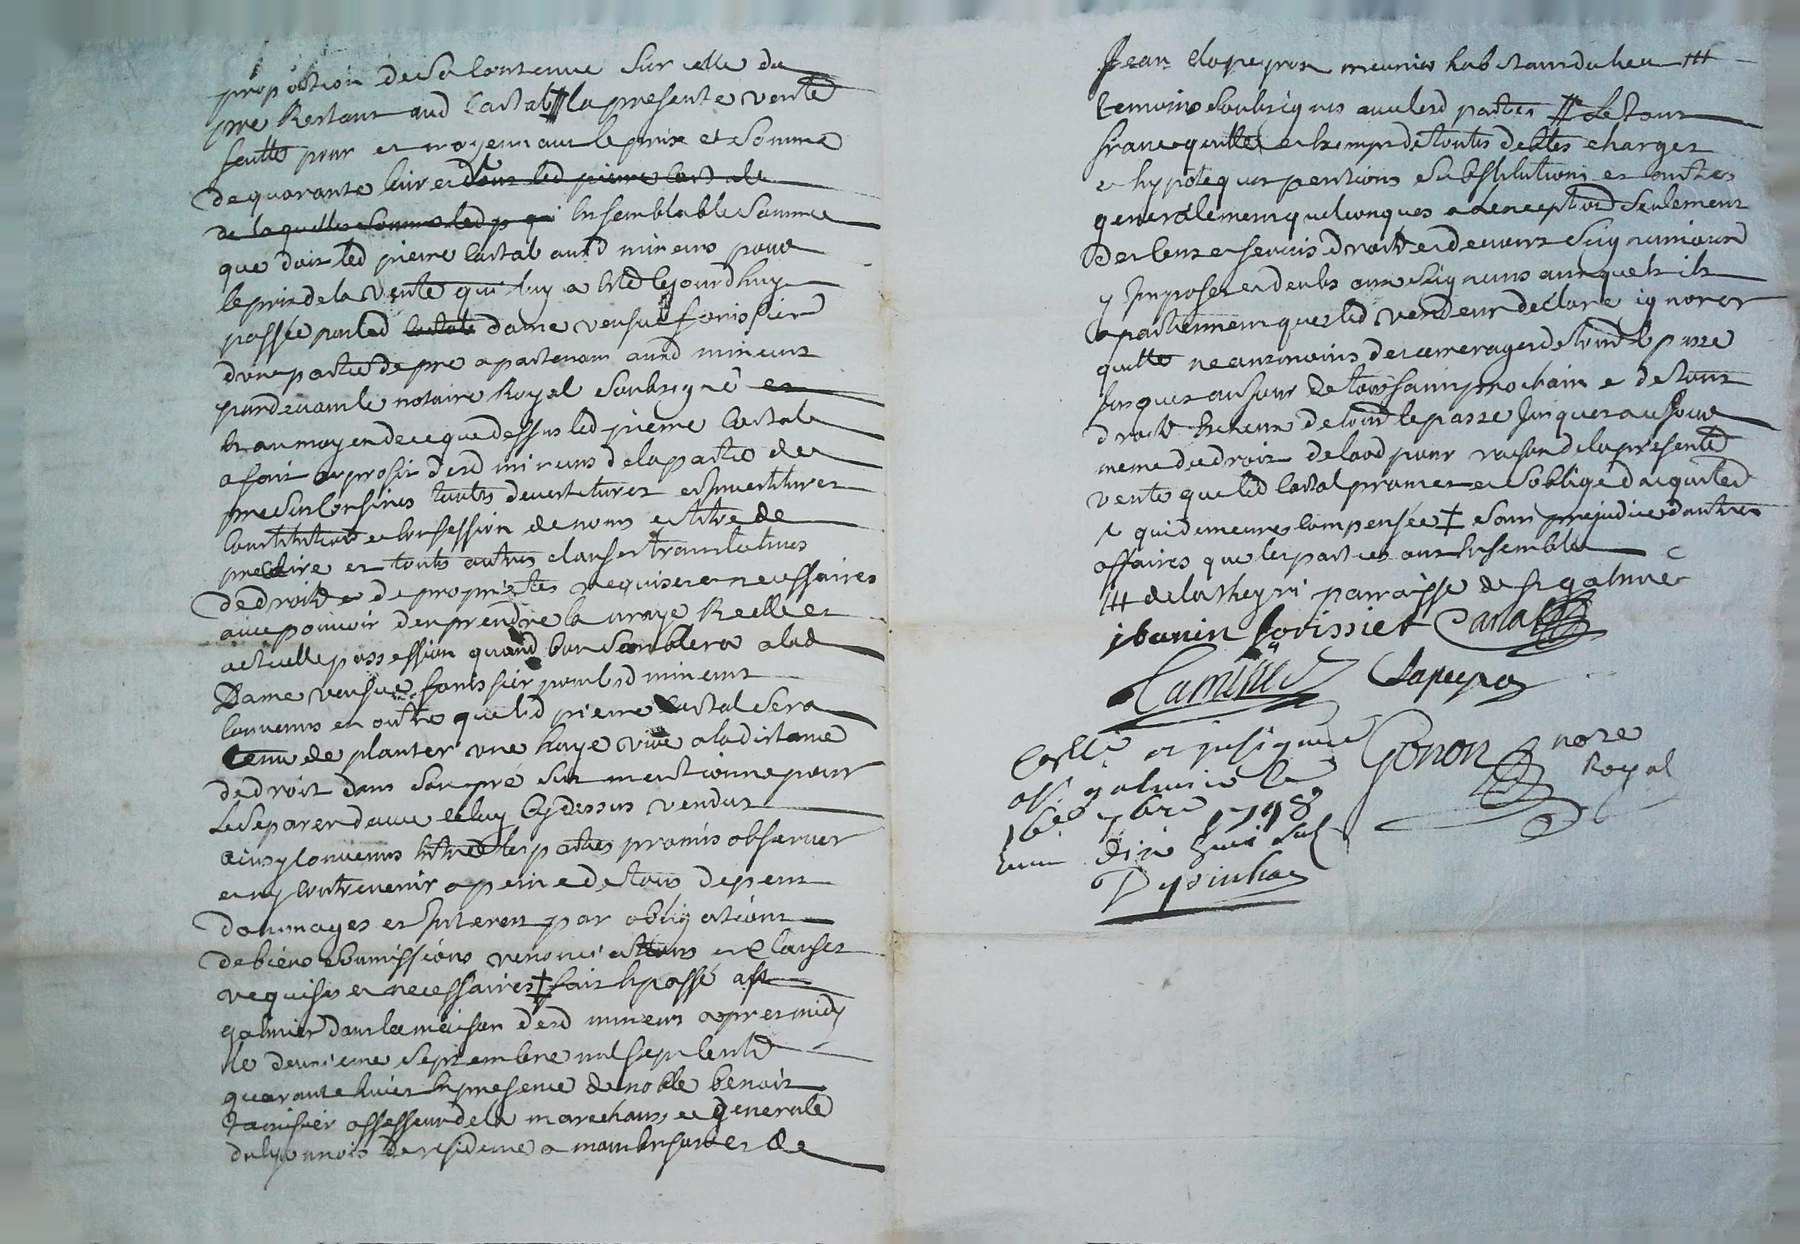 proportion de Sa Contenue Sur celle du
pré Restant aud Castal # la presente vente
faitte pour et moyenant le prix et Somme
de quarante huit dont led pierre Castal
de laquelle Somme led p qui En semblable Somme
que doit led pierre Castal ausd mineurs pour
le prix de la vente qui luy a Eté Cejourdhuy
passée par lad Castal dame veufve forissier
d'une partie de pré apartenant ausd mineurs
pardevant le notaire Royal soubsigné et
En au moyen de ce que dessus led pierre Castal
a fait au profit desd mineurs de la partie de
pré Sus Confinés toutes devestitures et Investitures
Constitution et Confession de noms et titre de
precaire et toutes autres clauses translatives
de droits et de proprietes requises et necessaires
avec pouvoir d'en prendre la vraye Reelle et
actuelle possession quand bon Semblera a lad
Dame veufve forissier pour lesd mineurs
Convenus en outre que led pierre Castal Sera
tenu de planter une haye vive a la distance
de droit dans Son pré Sus mentionné pour
Le Separer d'avec celuy Cy dessus vendu
ainsy Convenus Entre les parties promis observer
et ny Contrevenir a peine de tous depens
dommages et Interets par obligations
de biens soumissions renonciations et Clauses
requises et necessaires ‡ fait En passé a St
galmier dans la maison desd mineurs apres midy
le deuxieme Septembre mil Sept Cents
quarante huit En presence de noble benoit
tamisier assesseur de la marechaussee generale
du lyonnois de residence a
Jean Lapeyros meunier habitant du lieu ###
temoins Soubsignés avec lesd parties # Le tout
franc quitte et Exempt de toutes debtes charges
et hypoteques pentions Substitutions et autres
generalement quelconques a L'exception Seulement
Des Cens et Servis droits et devoirs Seigneuriaux
y Imposés et deubs aux Seigneurs aux quels ils
apartiennent que led vendeur declare ignorer
quitte neanmoins des arrerages de tout le passé
Jusques au Jour de toussaint prochain et de tous
droits En Ceux de tout le passé Jusques a ce Jour
meme du droit de laod pour raison de la presente
vente que led Castal promet et S'oblige d'acquitter
qui demeure Compensée ‡ Sans prejudice d'autres
affaires que les parties ont Ensemble
### de la theyri parroisse de St galmier
ibonin forissier Castal
Tamisier Lapeyros
Conllé et insinué
a St galmier le
16e 7bre 1748
Recu dix huit Sols
Gonon nore
Royal